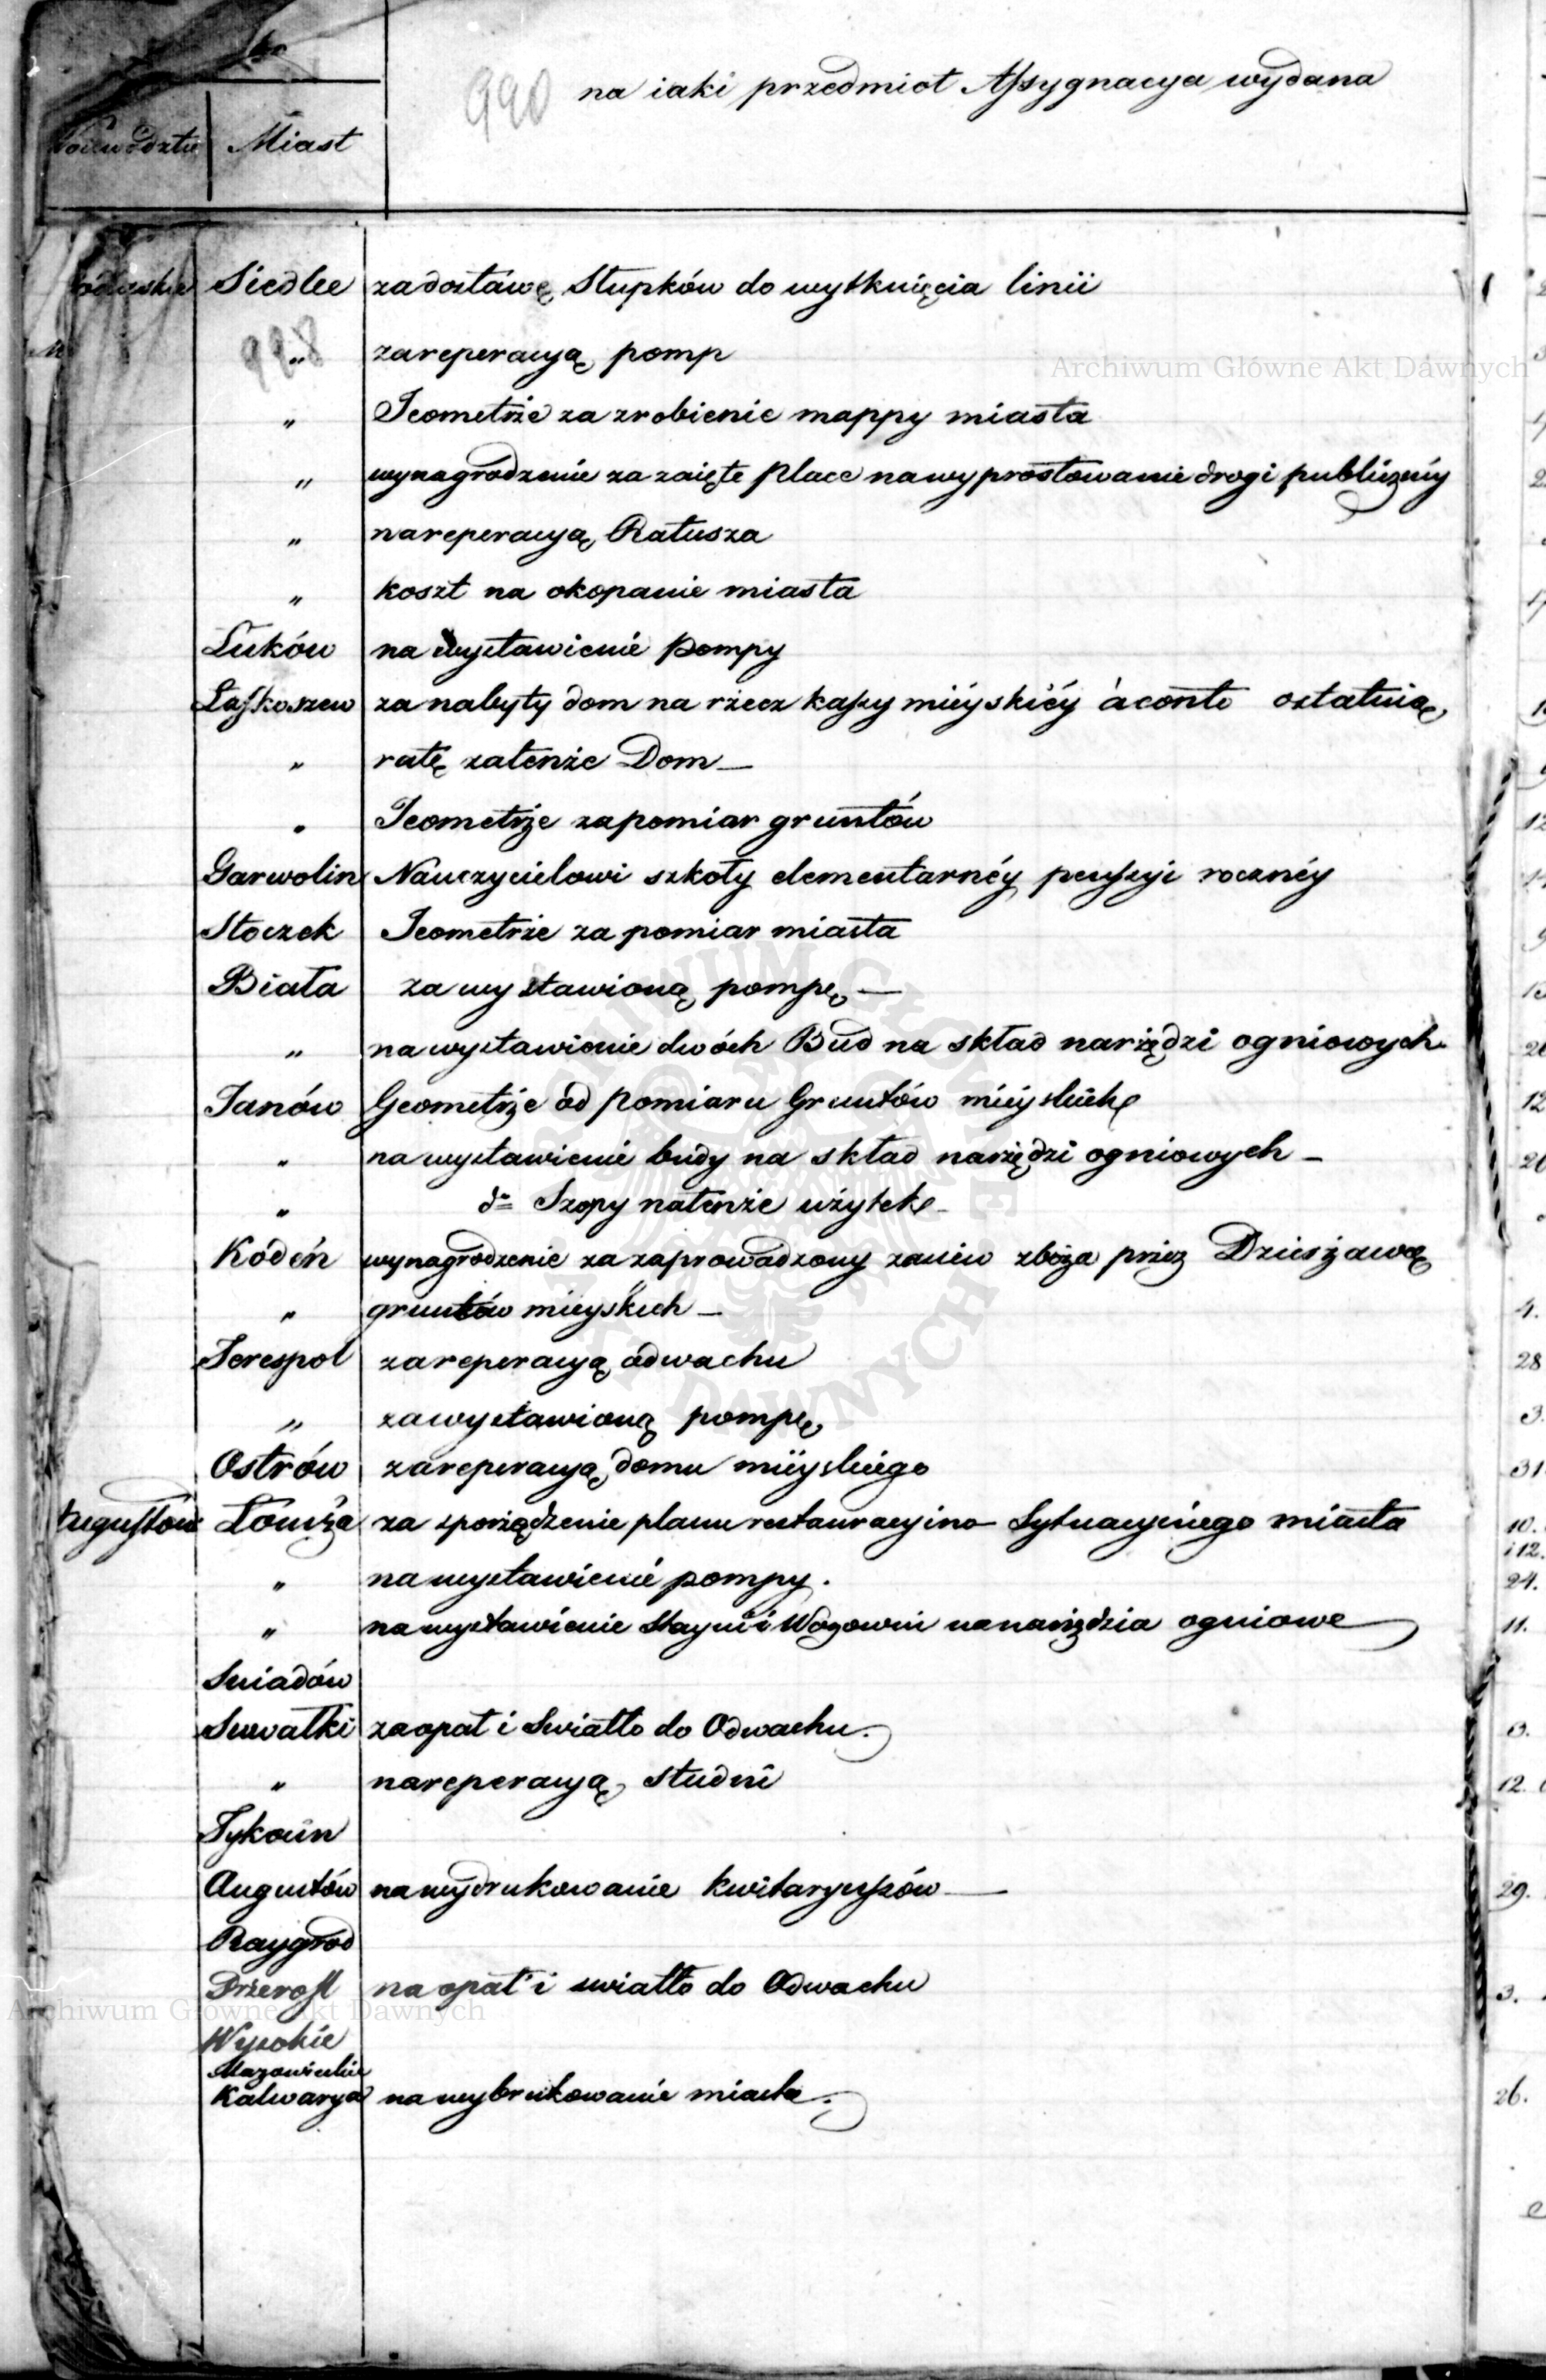 990 na iaki przedmiot Assygnacya wydana
Woiewództw Miast
Podlaskie Siedlce za dostawę Słupków do wytknięcia linii
998 " za reperacyą pomp
" Jeometrże za zrobienie mappy miasta
" wynagrodzenie za zaięte place na wyprostowanie drogi publiczney
" na reperacyą Ratusza
" koszt na okopanie miasta
Łuków na wystawienie pompy
Łaskoszew za nabyty dom na rzecz kassy mieyskiéy àconto ostatnią
" ratę za tenże Dom —
" Jeometrże za pomiar gruntów
Garwolin Nauczycielowi szkoły elementarnéy penssyi rocznéy
Stoczek Jeometrże za pomiar miasta
Biała za wystawioną pompę —
" na wystawienie dwóch Bud na skład narzędzi ogniowych
Janów Geometrże od pomiaru Gruntów mieyskich
" na wystawienie budy na skład narzędzi ogniowych —
" do Szopy na tenże użytek
Kodeń wynagrodzenie za zaprowadzony zasiew zboża przez Dzierżawcę
" gruntów mieyskich —
Terespol za reperacyą odwachu
" za wystawioną pompę
Ostrów za reperacyą domu mieyskiego
Augustow Łomża za sporządzenie planu restauracyino Sytuacyinego miasta
" na wystawienie pompy.
" na wystawienie Stayni i Wozowni na narzędzia ogniowe
Sniadów
Suwałki za opał i Swiatło do Odwachu.
" na reperacyą studni
Tykocin
Augustów na wydrukowanie kwitaryuszów —
Raygrod
Przerosl na opał i swiatło do Odwachu
Wysokie
Mazowieckie
Kalwarya na wybrukowanie miasta.
Archiwum Główne Akt Dawnych
Archiwum Główne Akt Dawnych
ARCHIWUM GŁÓWNE AKT DAWNYCH
28
3.
31.
10.
i 12.
24.
11.
3.
12.
29.
3.
26.